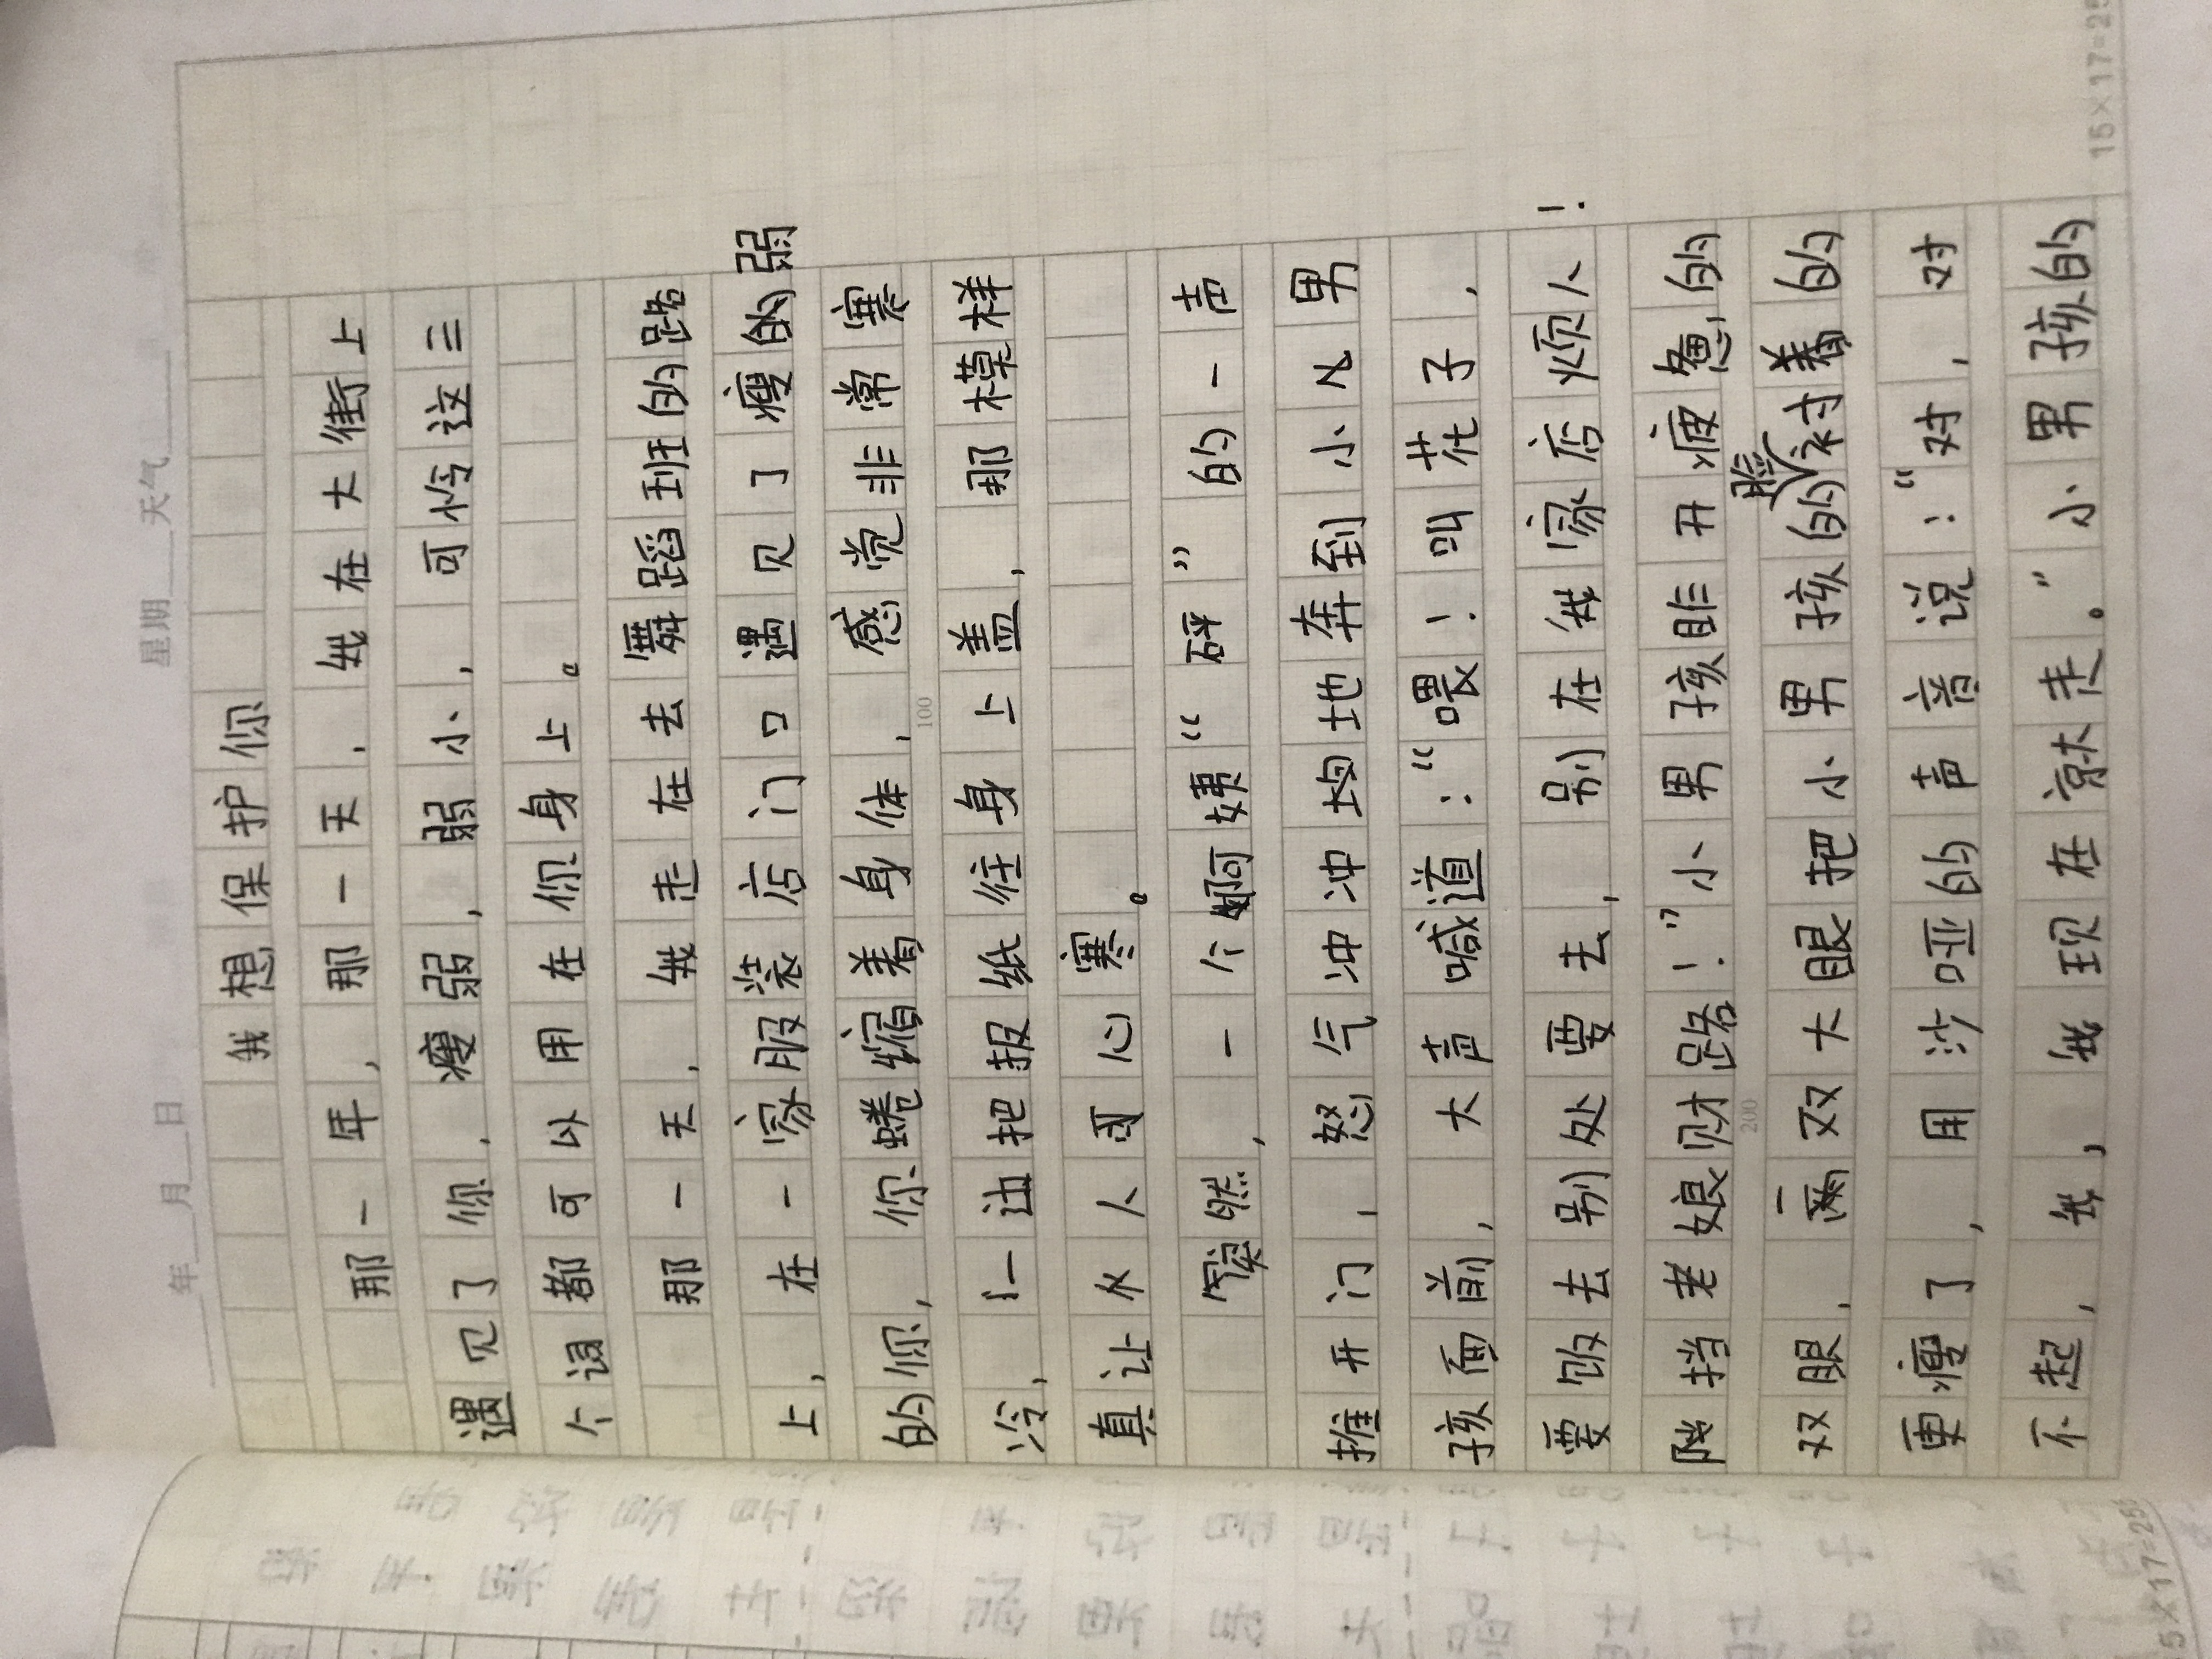 年 月 日 星期 天气
我想保护你
那一年，那一天，我在大街上
遇见了你，瘦弱，弱小，可怜这三
个词都可以用在你身上。
那一天，我走在去舞蹈班的路
上，在一家服装店门口遇见了瘦的弱
的你，你蜷缩着身体，感觉非常寒
冷，一边把报纸往身上盖，那模样
真让人心寒。
突然，一个阿姨“砰”的一声
推开门，怒气冲冲地奔到小男
孩面前，大声喊道：“喂！叫花子，
要饭去别处要去，别在我家店烦人！
阻挡老娘财路！”小男孩睁开疲惫的
双眼，两双大眼把小男孩的脸衬着的
更瘦了，用沙哑的声音说：“对，对
不起，我，我现在就走。”小男孩的
100
200
15×17=25
5×17=255